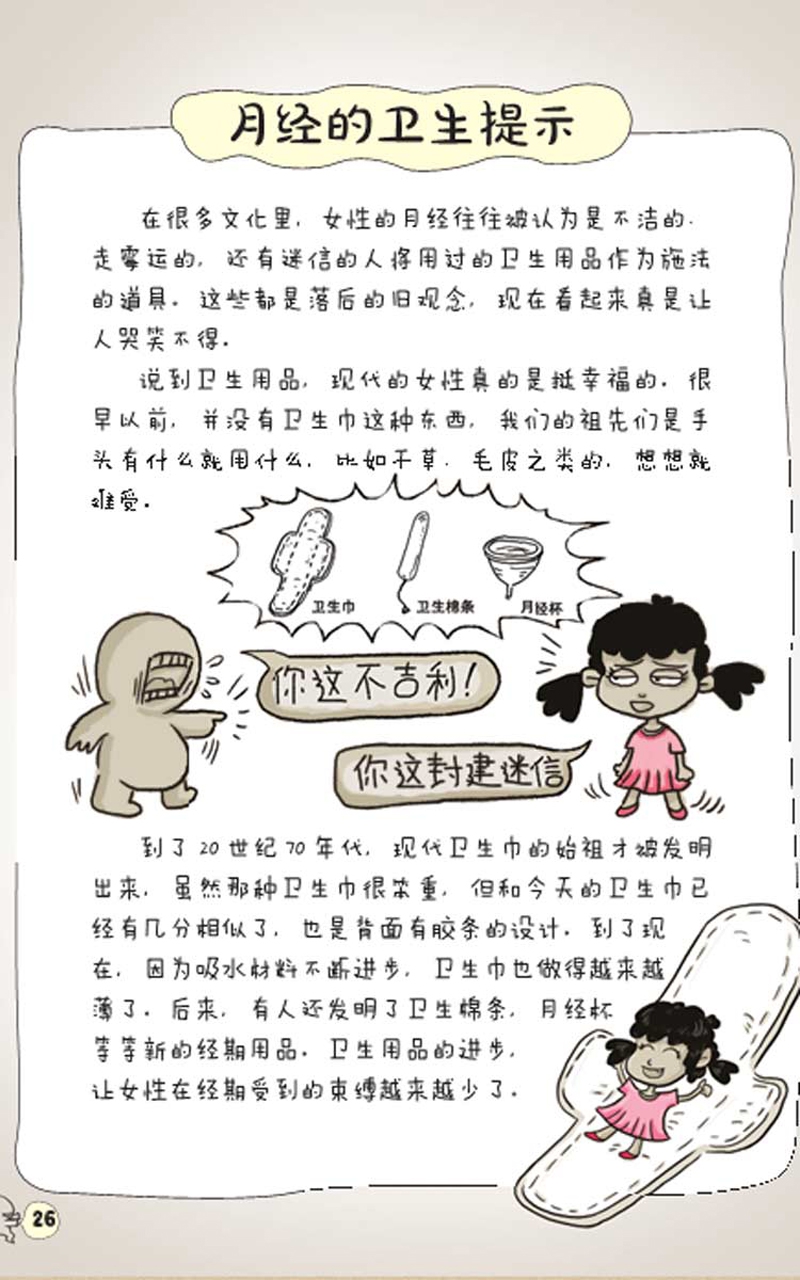 月经的卫生提示
在很多文化里，女性的月经往往被认为是不洁的、
走霉运的，还有迷信的人将用过的卫生用品作为施法
的道具。这些都是落后的旧观念，现在看起来真是让
人哭笑不得。
说到卫生用品，现代的女性真的是挺幸福的。很
早以前，并没有卫生巾这种东西，我们的祖先们是手
头有什么就用什么，比如干草、毛皮之类的，想想就
难受。
卫生巾
卫生棉条
月经杯
你这不吉利！
你这封建迷信
到了20世纪70年代，现代卫生巾的始祖才被发明
出来，虽然那种卫生巾很笨重，但和今天的卫生巾已
经有几分相似了，也是背面有胶条的设计。到了现
在，因为吸水材料不断进步，卫生巾也做得越来越
薄了。后来，有人还发明了卫生棉条，月经杯
等等新的经期用品。卫生用品的进步，
让女性在经期受到的束缚越来越少了。
26